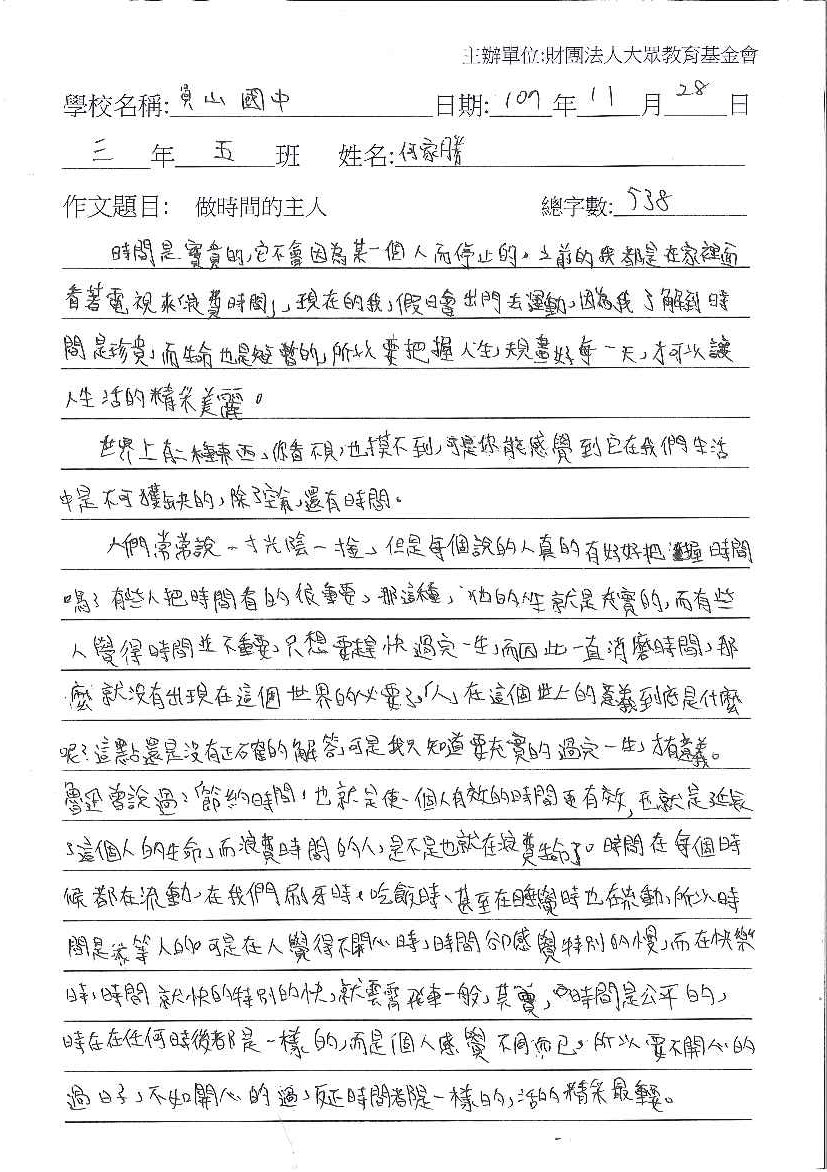 主辦單位:財團法人大眾教育基金會
學校名稱: 員山國中 日期: 109 年 11 月 28 日
三 年 五 班 姓名: 何家勝
作文題目: 做時間的主人 總字數: 538
時間是寶貴的,它不會因為某一個人而停止的。之前的我都是在家裡面
看著電視來「浪費時間」,現在的我,假日會出門去運動,因為我了解到時
間是珍貴,而生命也是短暫的,所以要把握人生,規畫好每一天,才可以讓
人生活的精采美麗。
世界上有二種東西,你看不見,也摸不到,可是你能感覺到它在我們生活
中是不可獲缺的,除了空氣,還有時間。
人們常常說一寸光陰一寸金,但是每個說的人真的有好好把握時間
嗎?有些人把時間看的很重要,那這種,他的人生就是充實的,而有些
人覺得時間並不重要,只想要趕快過完一生,而因此一直消磨時間,那
麼就沒有出現在這個世界的必要了。「人」在這個世上的意義到底是什麼
呢?這點還是沒有正確的解答,可是我只知道要充實的過完一生,才有意義。
魯迅曾說過:「節約時間,也就是使一個人有效的時間更有效,也就是延長
了這個人的生命,而浪費時間的人,是不是也就在浪費生命了。時間在每個時
候都在流動,在我們刷牙時、吃飯時、甚至在睡覺時也在流動,所以時
間是不等人的,可是在人覺得不開心時,時間卻感覺特別的慢,而在快樂
時,時間就快的特別的快,就雲霄飛車一般,其實,時間是公平的,
時在在任何時後都是一樣的,而是個人感覺不同而已。所以要不開心的
過日子,不如開心的過,反正時間都是一樣的,活的精采最重要。